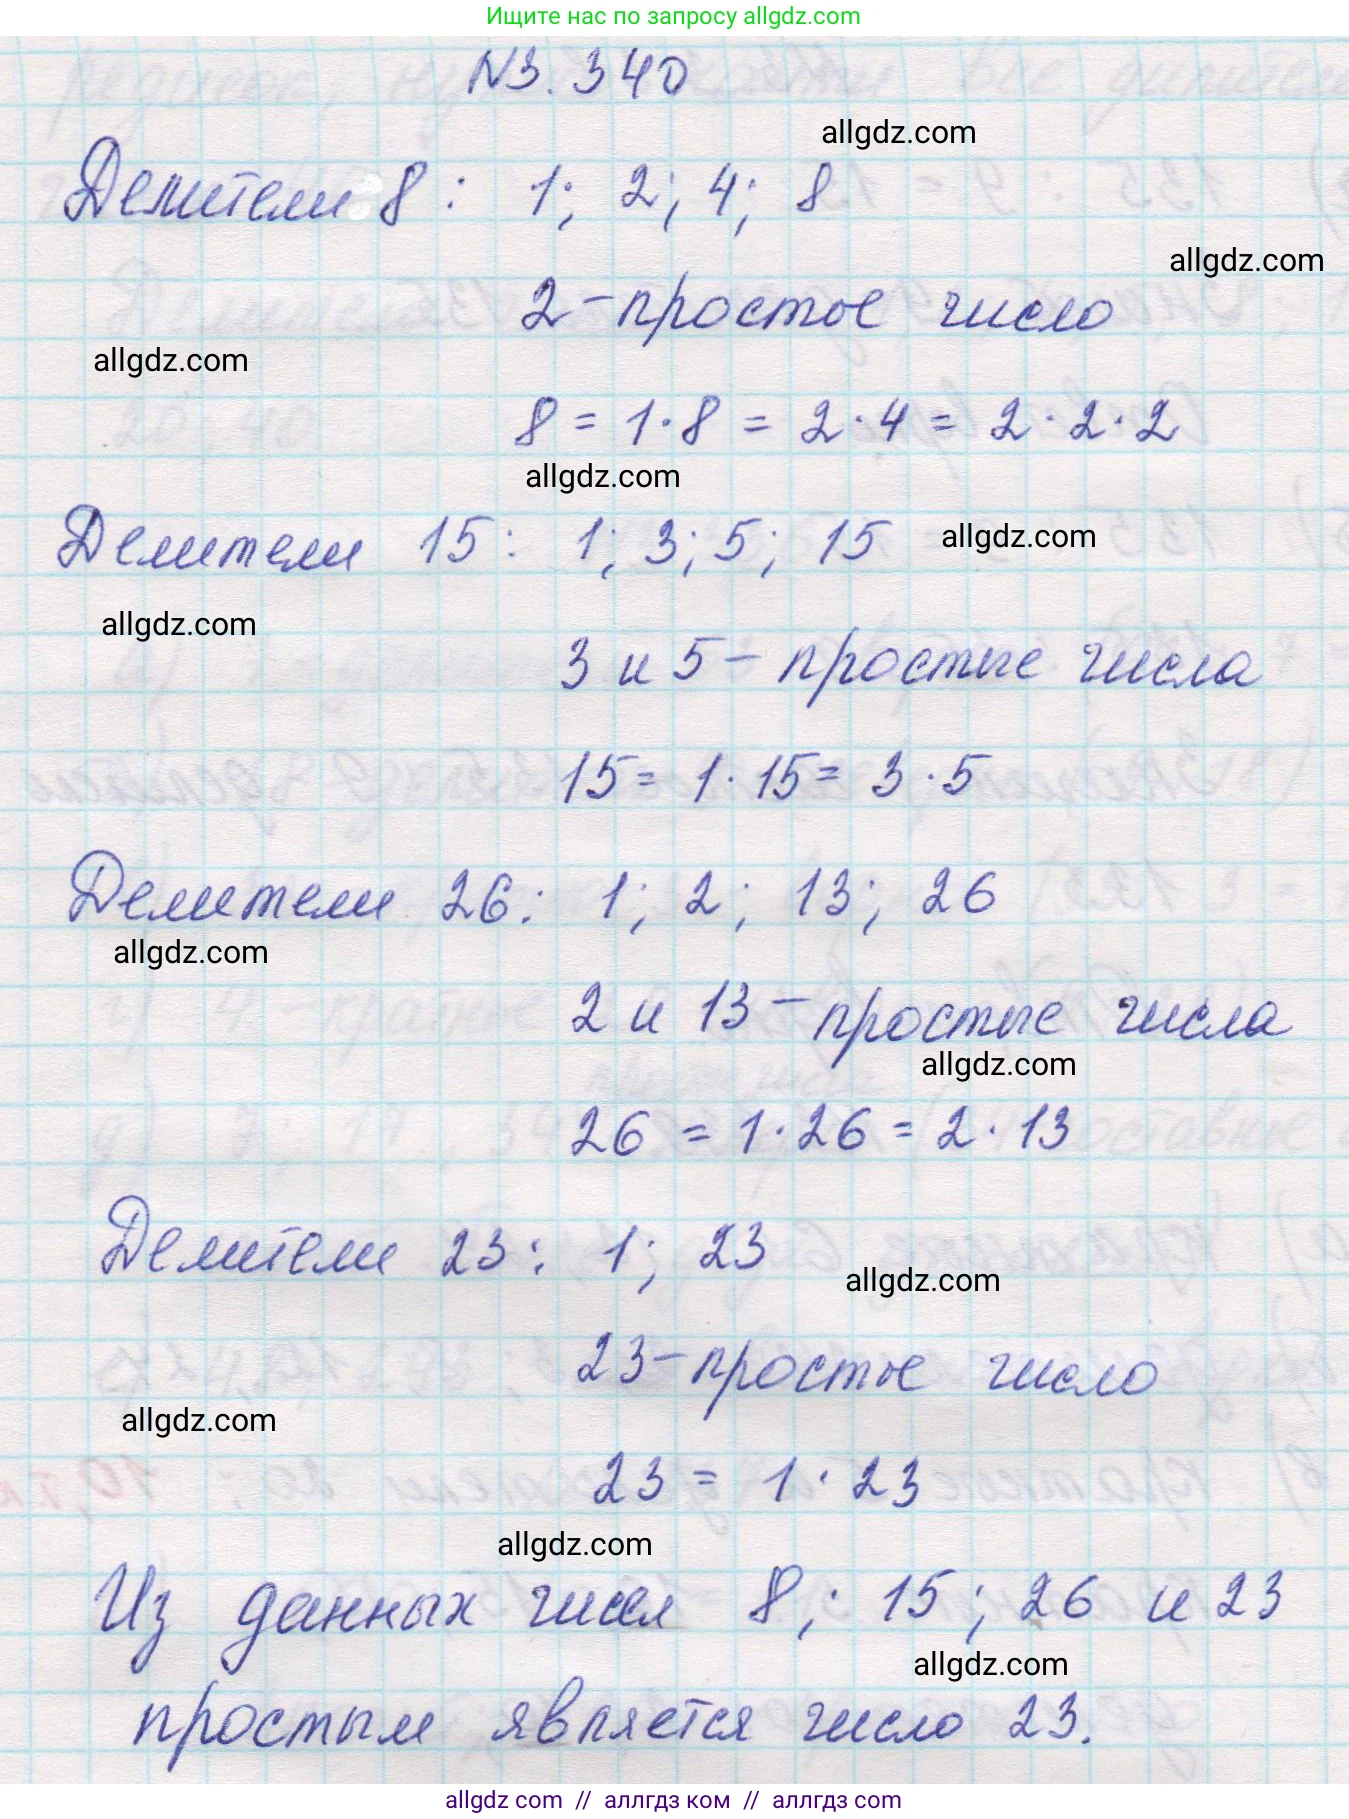 Ищите нас по запросу allgdz.com
N3.340
allgdz.com
Делители 8 : 1; 2; 4; 8
allgdz.com
2 – простое число
allgdz.com
8 = 1 · 8 = 2 · 4 = 2 · 2 · 2
allgdz.com
Делители 15 : 1; 3; 5; 15
allgdz.com
allgdz.com
3 и 5 – простые числа
15 = 1 · 15 = 3 · 5
Делители 26 : 1; 2; 13; 26
allgdz.com
2 и 13 – простые числа
allgdz.com
26 = 1 · 26 = 2 · 13
Делители 23 : 1; 23
allgdz.com
23 – простое число
allgdz.com
23 = 1 · 23
allgdz.com
Из данных чисел 8; 15; 26 и 23
allgdz.com
простым является число 23.
allgdz.com // аллгдз ком // аллгдз com